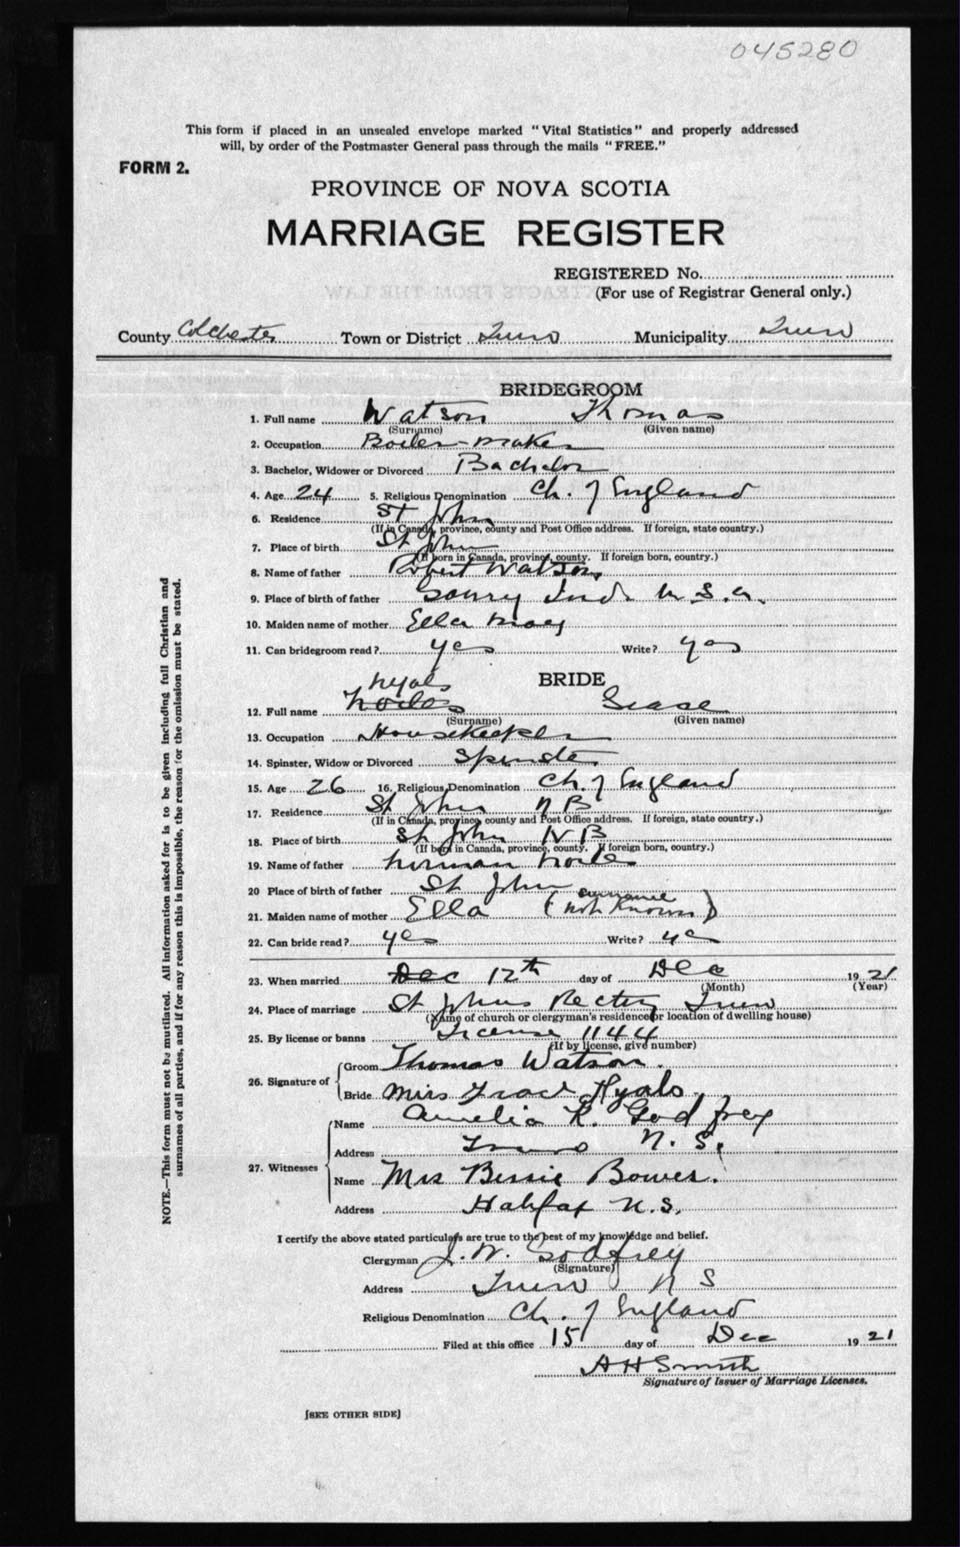 045280
This form if placed in an unsealed envelope marked "Vital Statistics" and properly addressed
will, by order of the Postmaster General pass through the mails "FREE."
FORM 2.
PROVINCE OF NOVA SCOTIA
MARRIAGE REGISTER
REGISTERED No.
(For use of Registrar General only.)
County Colchester Town or District Truro Municipality Truro
BRIDEGROOM
1. Full name Watson Thomas
(Surname) (Given name)
2. Occupation Boiler-maker
3. Bachelor, Widower or Divorced Bachelor
4. Age 24 5. Religious Denomination Ch. of England
6. Residence St John
(If in Canada, province, county and Post Office address. If foreign, state country.)
7. Place of birth St John
(If born in Canada, province, county. If foreign born, country.)
8. Name of father Robert Watson
9. Place of birth of father U.S.A.
10. Maiden name of mother Ella
11. Can bridegroom read? yes Write? yes
BRIDE
Hyals
12. Full name
(Surname) (Given name)
13. Occupation Housekeeper
14. Spinster, Widow or Divorced Spinster
15. Age 26 16. Religious Denomination Ch. of England
17. Residence St John N B
(If in Canada, province, county and Post Office address. If foreign, state country.)
18. Place of birth St John N B
(If born in Canada, province, county. If foreign born, country.)
19. Name of father Herman
20 Place of birth of father St John
21. Maiden name of mother Ella (surname not known)
22. Can bride read? yes Write? yes
23. When married Dec 12th day of Dec 1921
(Month) (Year)
24. Place of marriage St Johns Rectory Truro
(Name of church or clergyman's residence or location of dwelling house)
25. By license or banns License 1144
(If by license, give number)
26. Signature of
Groom Thomas Watson.
Bride Miss Hyals.
27. Witnesses
Name Amelia R. Godfrey
Address Truro N. S.
Name Mrs Bessie Bower.
Address Halifax N.S.
I certify the above stated particulars are true to the best of my knowledge and belief.
Clergyman J. W. Godfrey
(Signature)
Address Truro N S
Religious Denomination Ch. of England
Filed at this office 15 day of Dec 1921
A H Smith
Signature of Issuer of Marriage Licenses.
[SEE OTHER SIDE]
NOTE.—This form must not be mutilated. All information asked for is to be given including full Christian and
surnames of all parties, and if for any reason this is impossible, the reason for the omission must be stated.